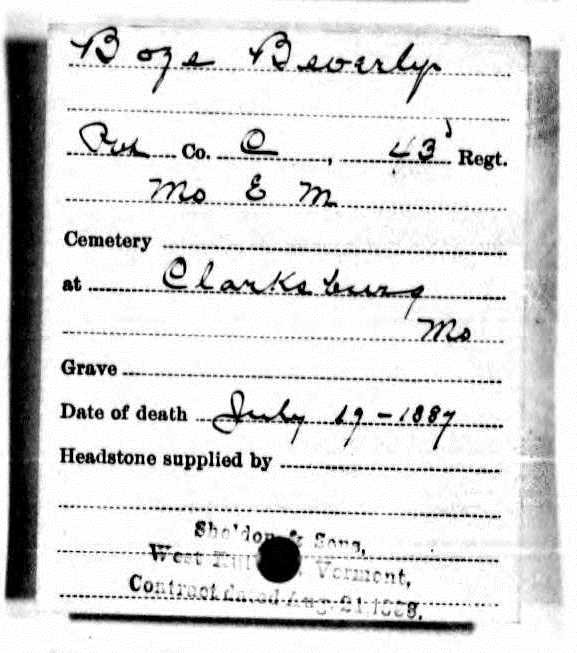 Boze Beverly
Pvt Co. C, 43 Regt.
Mo E M
Cemetery
at Clarksburg
Mo
Grave
Date of death July 19 - 1887
Headstone supplied by
Sheldon & Sons,
West Vermont,
Contract dated Aug. 21, 1888.